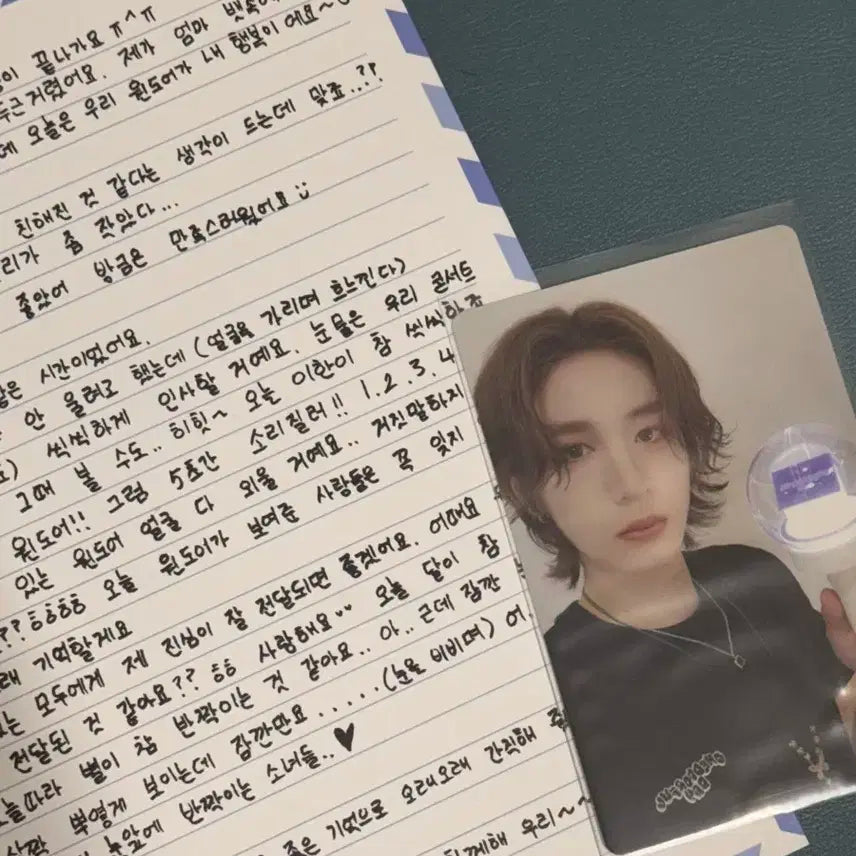 끝나가요 ㅠ^ㅠ
두근거렸어요. 제가 엄마 뱃속에
오늘은 우리 원도어가 내 행복이어요~
친해진 것 같다는 생각이 드는데 맞죠..??
리가 좀 작았다...
좋았어 방금은 만족스러웠어요
시간이었어요.
안 울려고 했는데 (얼굴을 가리며 흐느낀다)
씩씩하게 인사할 거예요. 눈물은 우리 콘서트
그때 볼 수도.. 히힛~ 오늘 이한이 참 씩씩하죠
원도어!! 그럼 5초간 소리질러!! 1.2.3.4
있는 원도어 얼굴 다 외울 거예요.. 거짓말하지
??ㅎㅎㅎㅎ 오늘 원도어가 보여준 사랑들은 꼭 잊지
래 기억할게요
는 모두에게 제 진심이 잘 전달되면 좋겠어요. 어때요
전달된 것 같아요?? ㅎㅎ 사랑해요 오늘 달이 참
늘따라 별이 참 반짝이는 것 같아요.. 아.. 근데 잠깐
살짝 뿌옇게 보이는데 잠깐만요.....(눈을 비비며) 어
눈앞에 반짝이는 소녀들..♥
좋은 기억으로 오래오래 간직해
함께해 우리~~